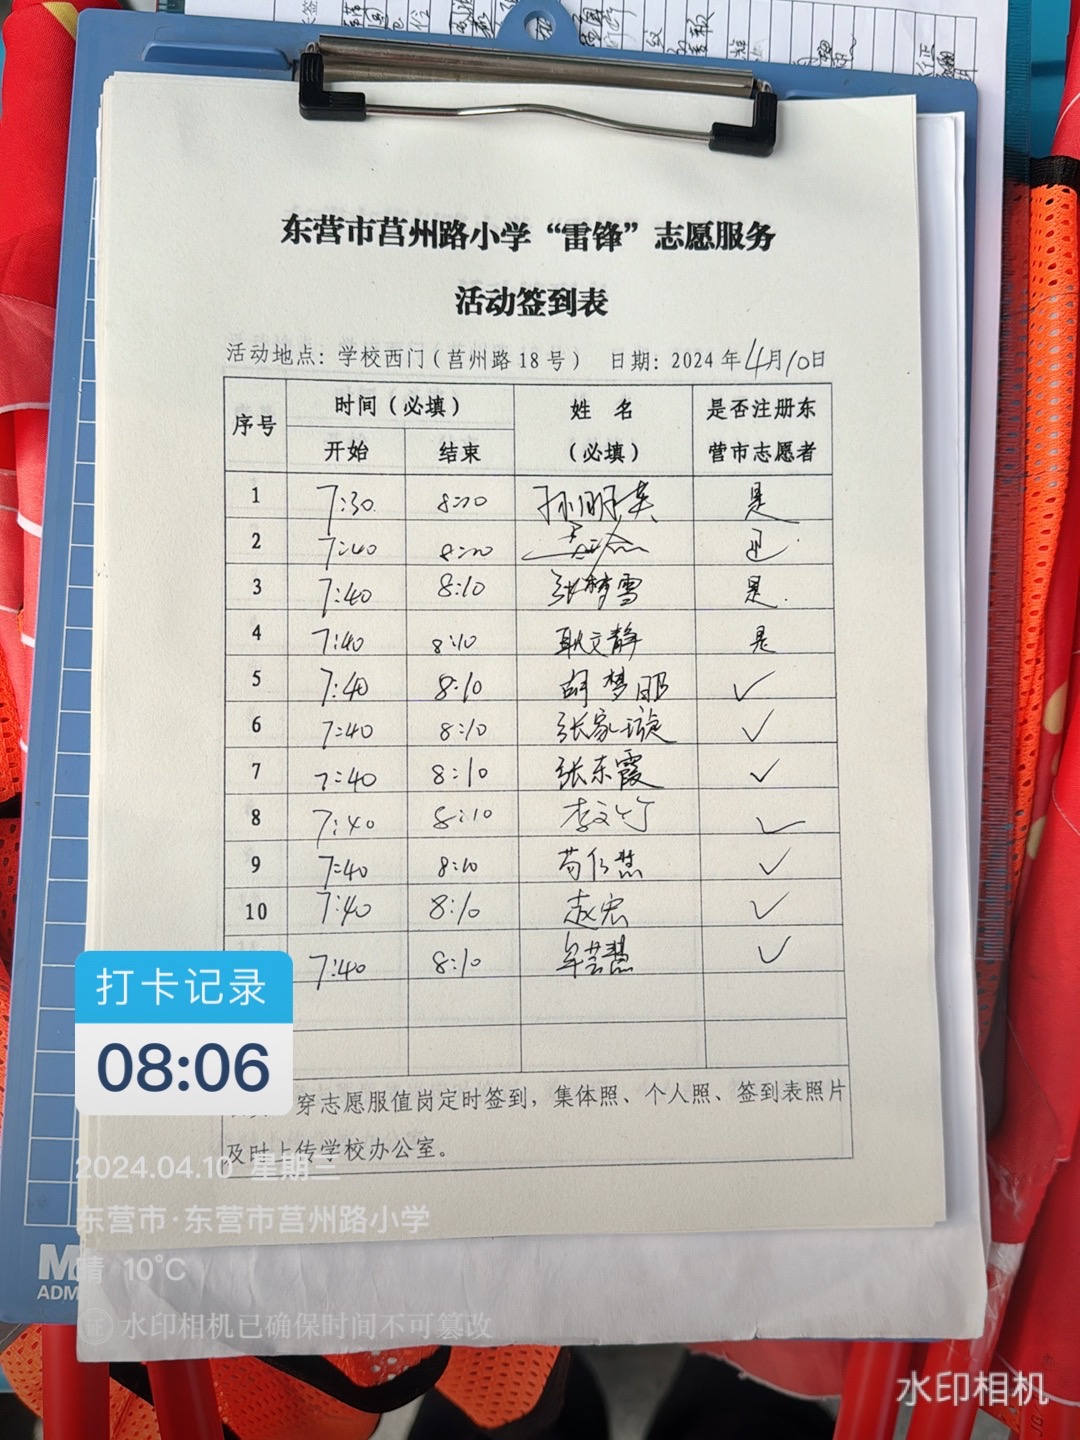 东营市莒州路小学“雷锋”志愿服务
活动签到表
活动地点：学校西门（莒州路18号） 日期：2024年4月10日
序号 时间（必填） 姓名 是否注册东
开始 结束 （必填） 营市志愿者
1 7:30 8:20 孙明英 是
2 7:40 8:20
3 7:40 8:10 张梦雪 是
4 7:40 8:10 耿文静 是
5 7:40 8:10 胡梦 ✓
6 7:40 8:10 张家璇 ✓
7 7:40 8:10 张东霞 ✓
8 7:40 8:10 李文竹 ✓
9 7:40 8:10 苟 慧 ✓
10 7:40 8:10 赵宏 ✓
7:40 8:10 牟芸慧 ✓
穿志愿服值岗定时签到，集体照、个人照、签到表照片
及时上传学校办公室。
打卡记录
08:06
2024.04.10 星期三
东营市·东营市莒州路小学
晴 10°C
证 水印相机已确保时间不可篡改
水印相机